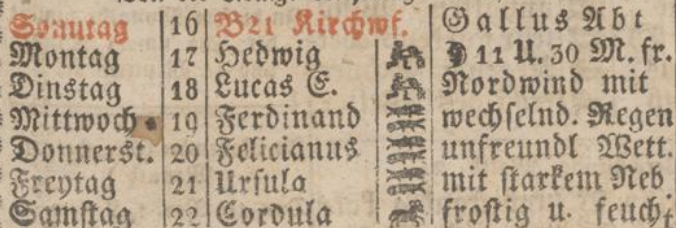 Sonntag 16 B21 Kirchwf. Gallus Abt
Montag 17 Hedwig 11 U. 30 M. fr.
Dinstag 18 Lucas E. Nordwind mit
Mittwoch 19 Ferdinand wechselnd. Regen
Donnerst. 20 Felicianus unfreundl Wett.
Freytag 21 Ursula mit starkem Neb
Samstag 22 Cordula frostig u. feucht